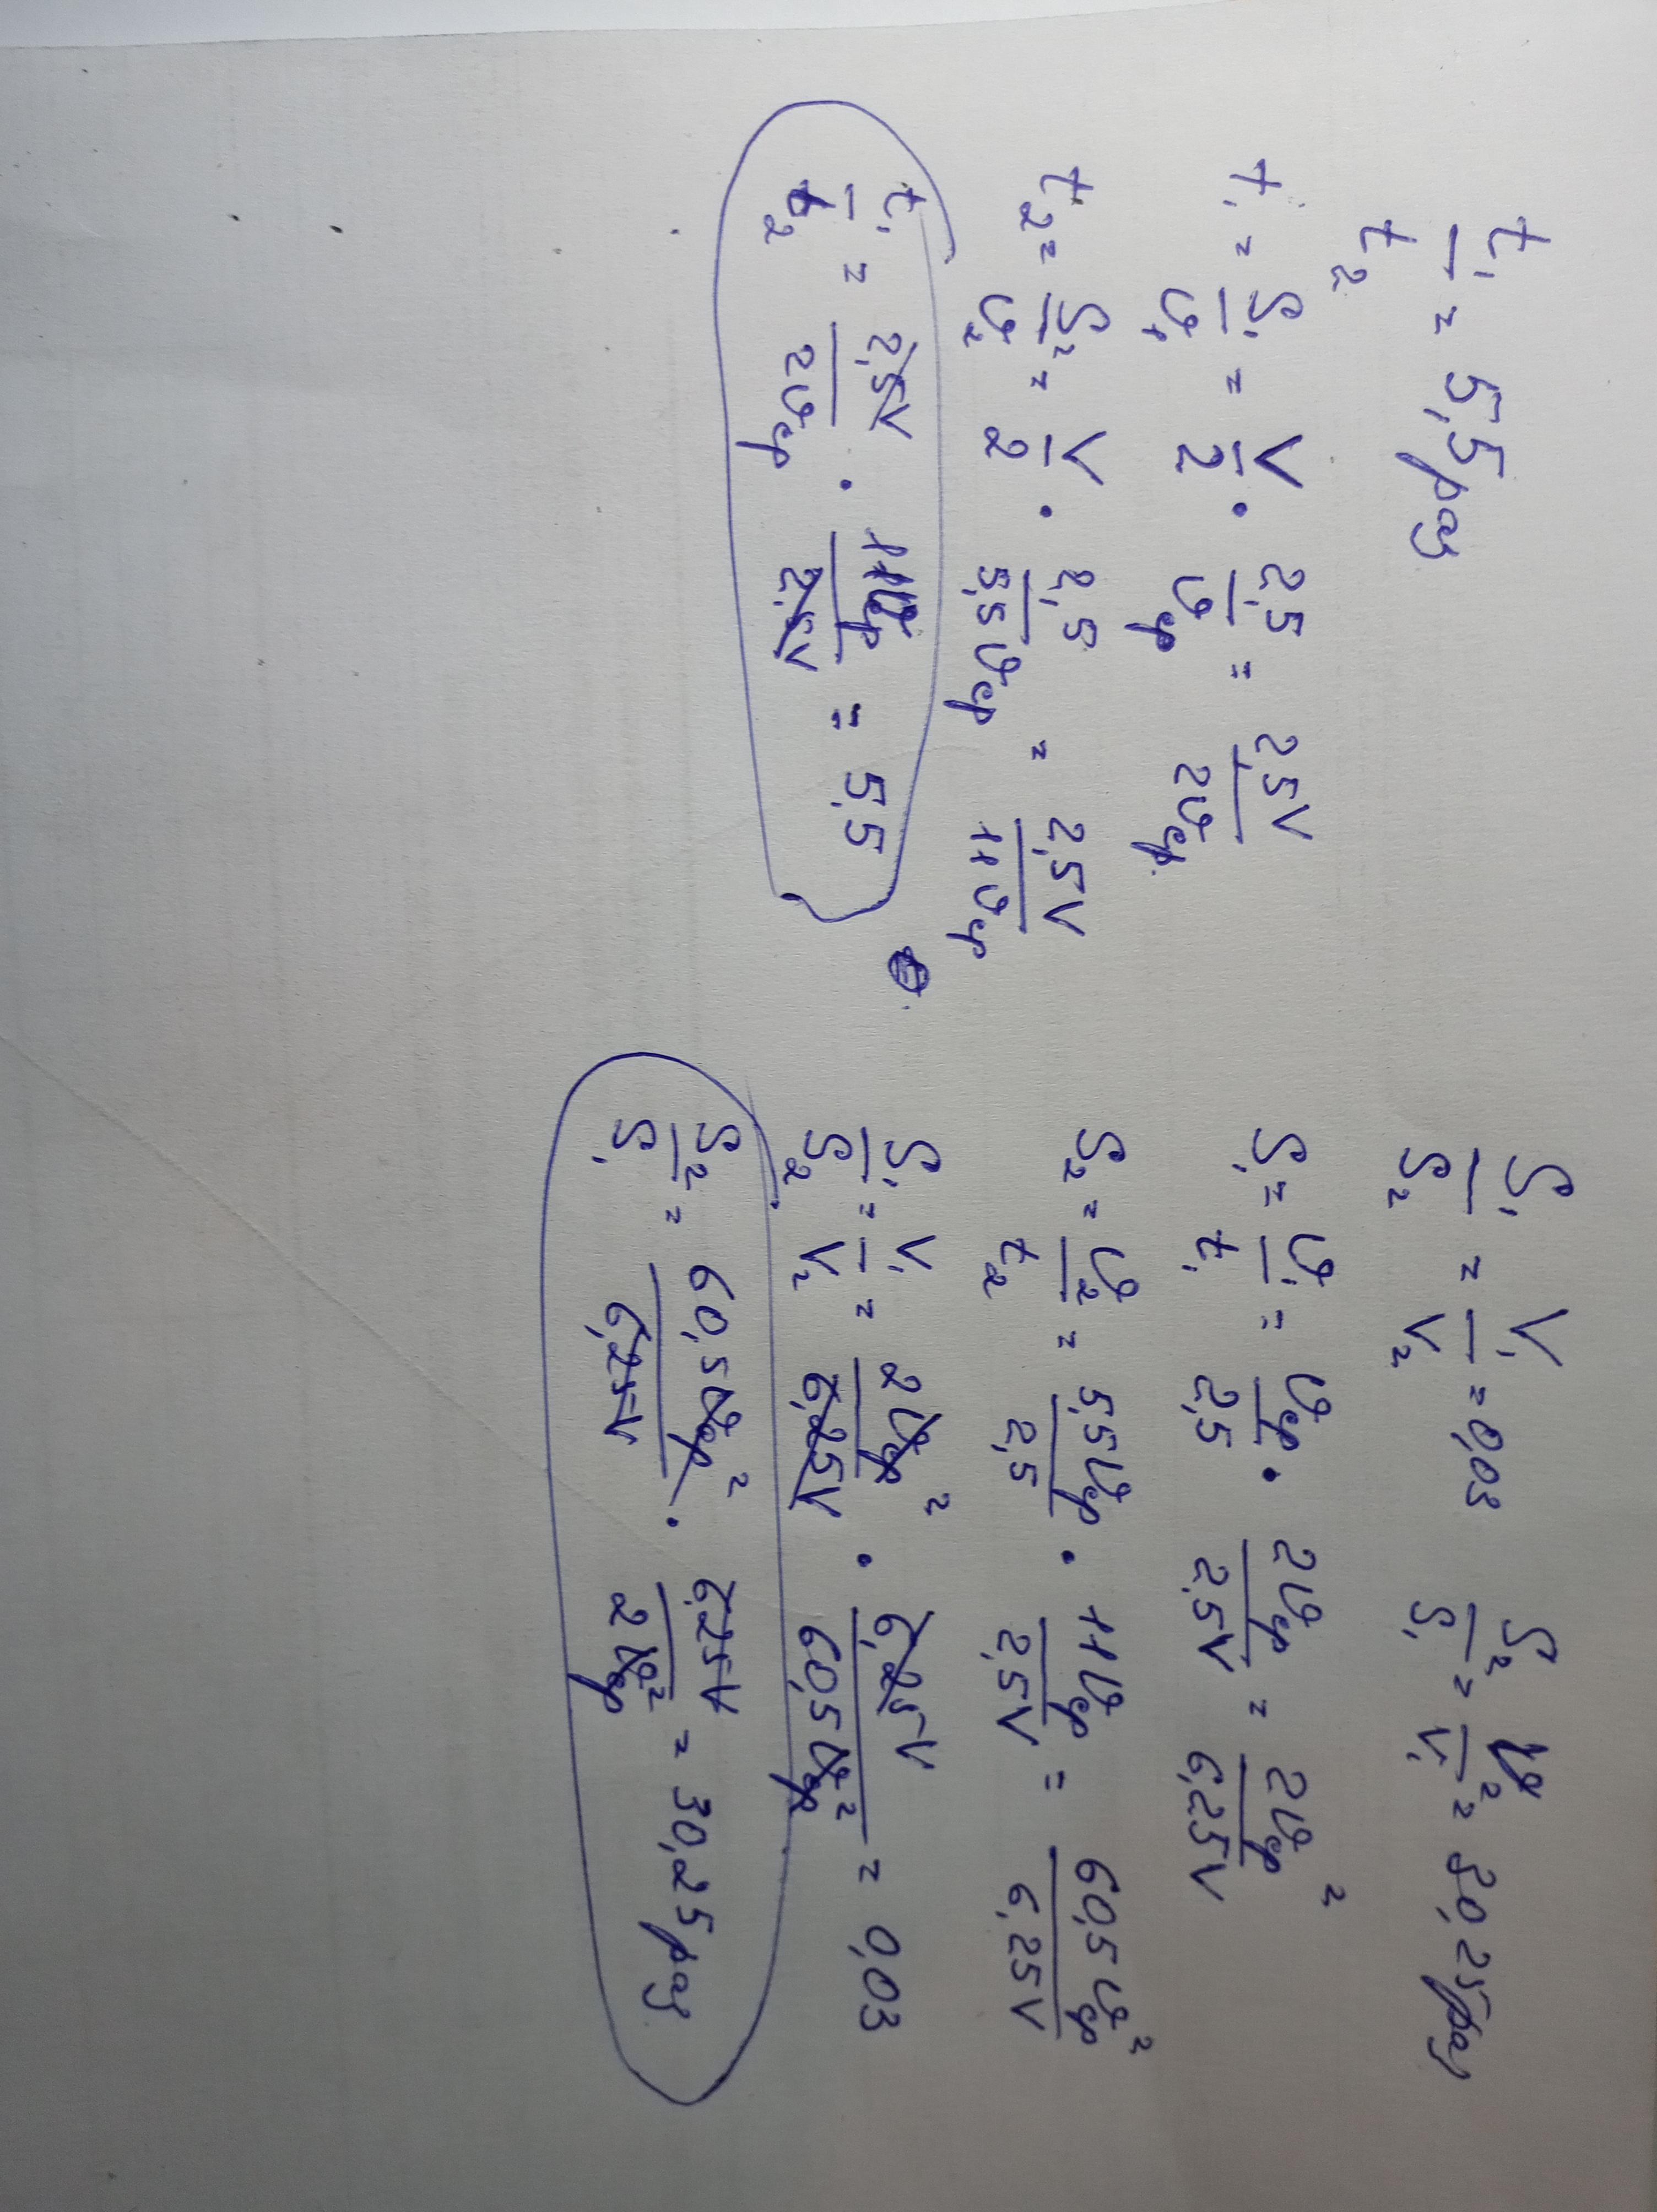 t₁/t₂ = 5,5 раз
t₁ = S₁/υ₁ = V/2 · 2,5/υср = 2,5V/2υср
t₂ = S₂/υ₂ = V/2 · 2,5/5,5υср = 2,5V/11υср
t₁/t₂ = 2,5V/2υср · 11υср/2,5V = 5,5
S₁/S₂ = V₁/V₂ = 0,03 S₂/S₁ = V₂/V₁ = 30,25 раз
S₁ = υ₁/t₁ = υср/2,5 · 2υср/2,5V = 2υср²/6,25V
S₂ = υ₂/t₂ = 5,5υср/2,5 · 11υср/2,5V = 60,5υср²/6,25V
S₁/S₂ = V₁/V₂ = 2υср²/6,25V · 6,25V/60,5υср² = 0,03
S₂/S₁ = 60,5υср²/6,25V · 6,25V/2υср² = 30,25 раз